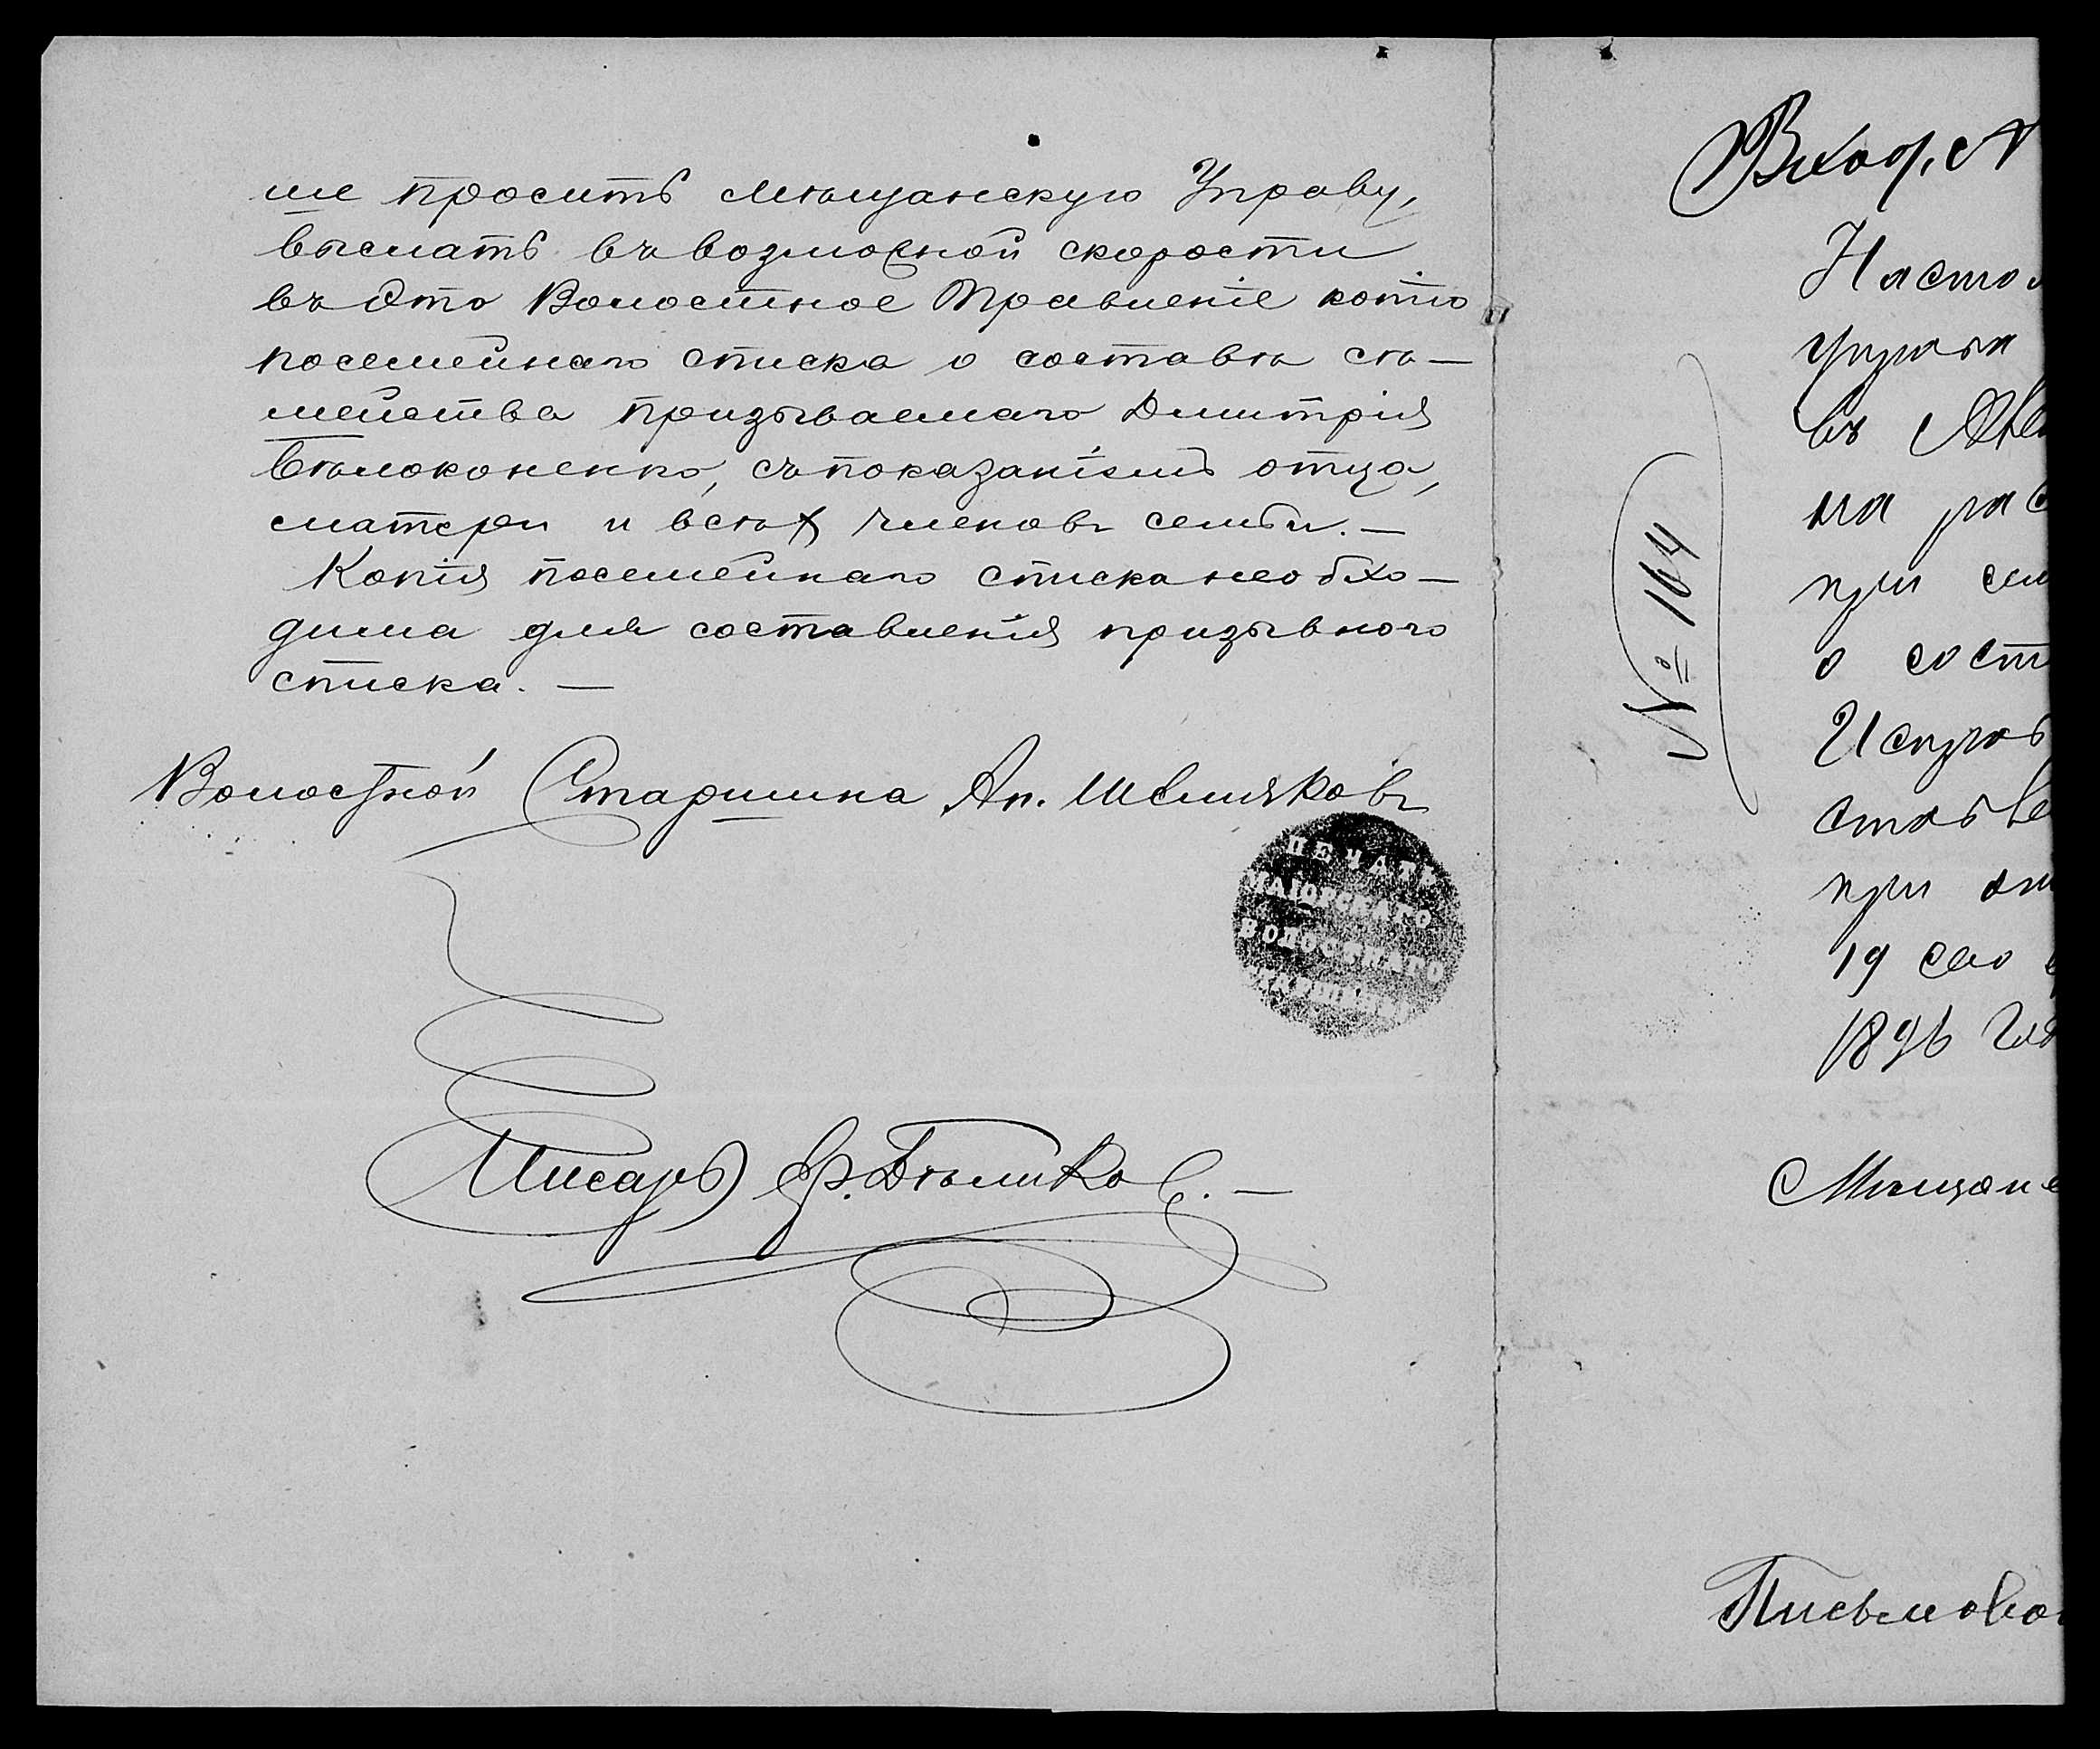 ше проситъ мѣщанскую Управу,
выслать въ возможной скорости
въ Это Волостное Правленіе копію
посемейнаго списка о составѣ сѣ—
мейства призываемаго Дмитрія
Бѣлоконенко, съ показаніемъ отца,
матери и всѣхъ членовъ семьи.—
Копія посемейнаго списка необхо—
дима для составленія призывного
списка.—
Волостной Старшина Ап. Шемяковъ
ПЕЧАТЬ
МАІОРСКАГО
ВОЛОСТНАГО
СТАРШИНЫ
Писарь
Вход. №
№ 164
Насто
управа
въ
на рас
при сем
о сост
Исправ
ставле
при
19 сен
1896 год
Мѣщанс
Письмово